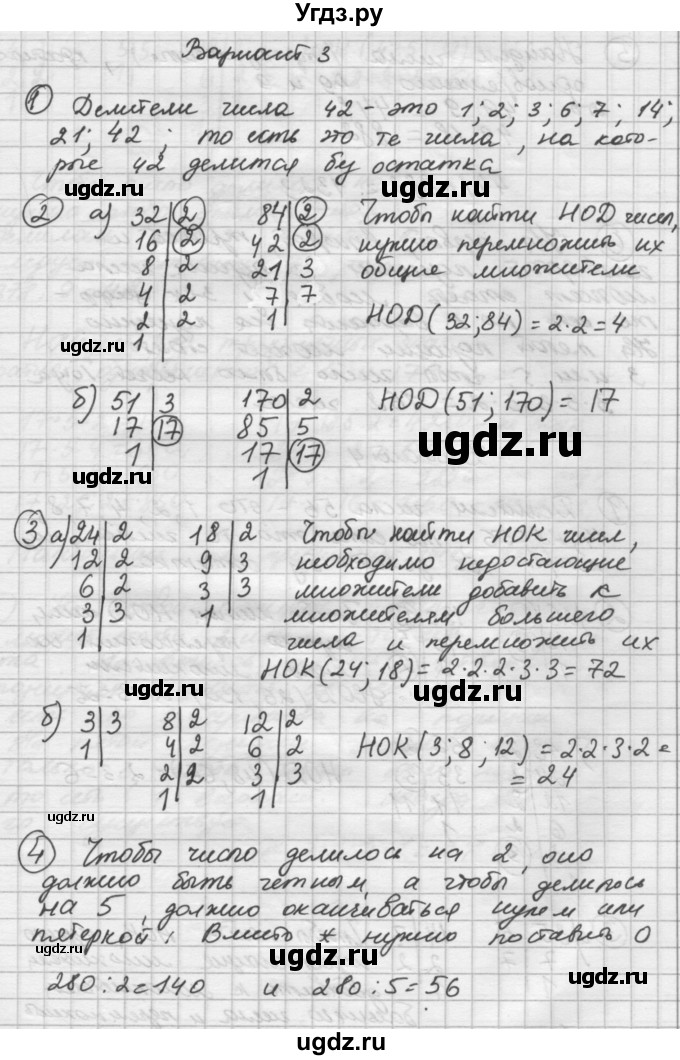 Угдз.ру
Вариант 3
① Делители числа 42 - это 1; 2; 3; 6; 7; 14;
21; 42 ; то есть это те числа, на кото-
рые 42 делится без остатка
ugdz.ru ugdz.ru
② а) 32|2 84|2 Чтобы найти НОД чисел,
16|2 42|2 нужно перемножить их
8|2 21|3 общие множители
4|2 7|7
2|2 1| НОД(32;84) = 2·2 = 4
ugdz.ru 1|
б) 51|3 170|2 НОД(51; 170) = 17
17|17 85|5 ugdz.ru
1| 17|17
ugdz.ru 1|
③ а) 24|2 18|2 Чтобы найти НОК чисел,
12|2 9|3 необходимо недостающие
6|2 3|3 множители добавить к
3|3 1| множителям большего
1| числа и перемножить их
НОК(24; 18) = 2·2·2·3·3 = 72
ugdz.ru ugdz.ru
б) 3|3 8|2 12|2
1| 4|2 6|2 НОК(3; 8; 12) = 2·2·3·2 =
2|2 3|3 = 24
1| 1|
ugdz.ru
④ Чтобы число делилось на 2, оно
должно быть четным, а чтобы делилось
на 5, должно оканчиваться нулем или
пятеркой; Вместо * нужно поставить 0
ugdz.ru ugdz.ru
280:2=140 и 280:5=56
ugdz.ru